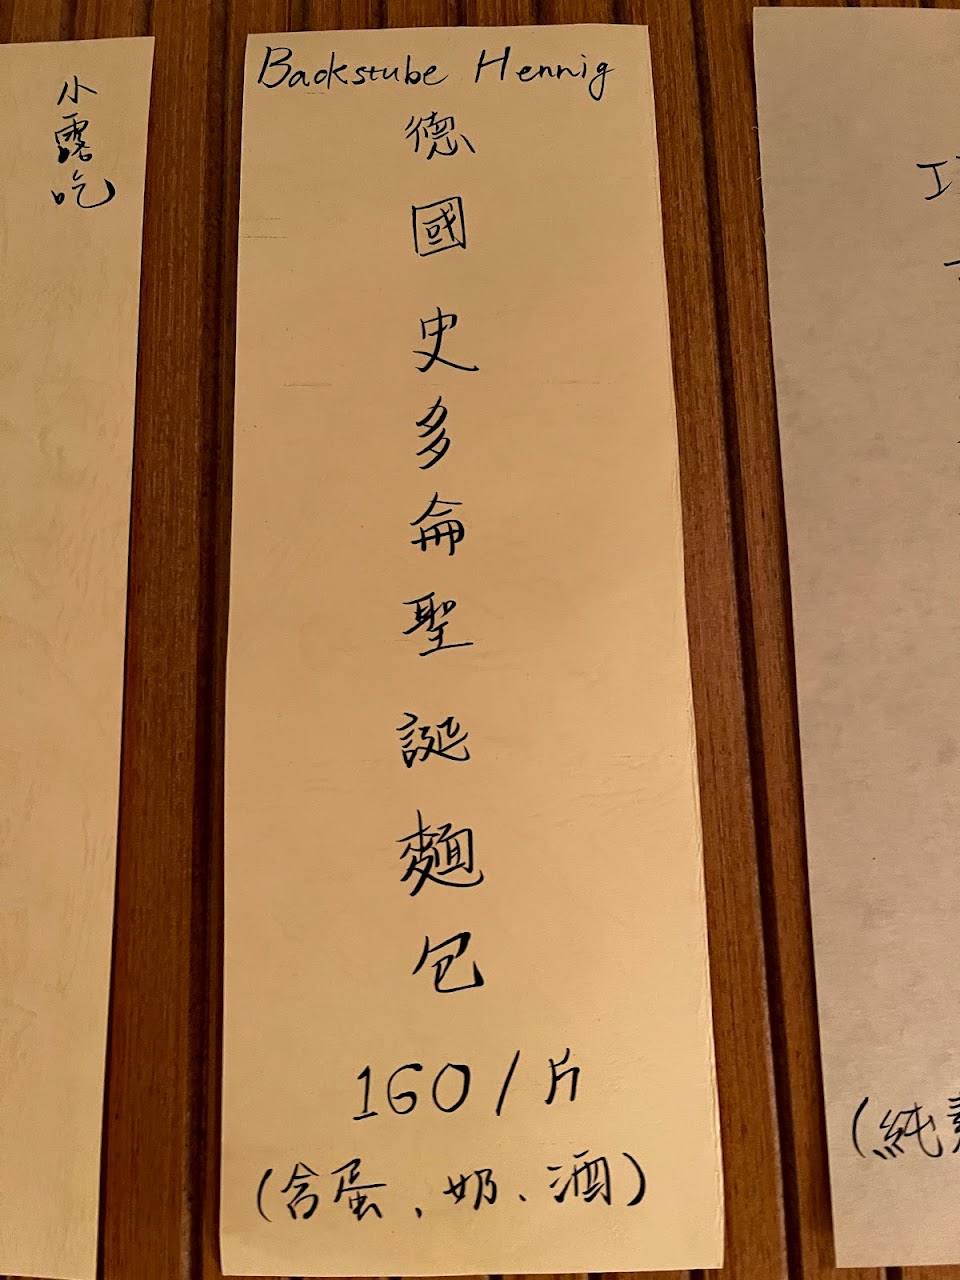 小露吃
Backstube Hennig
德國史多侖聖誕麵包
160/片
(含蛋、奶、酒)
(純